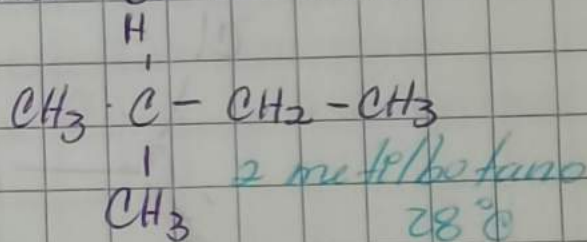 H
CH3 · C - CH2 - CH3
CH3 2 metilbotano
28°C